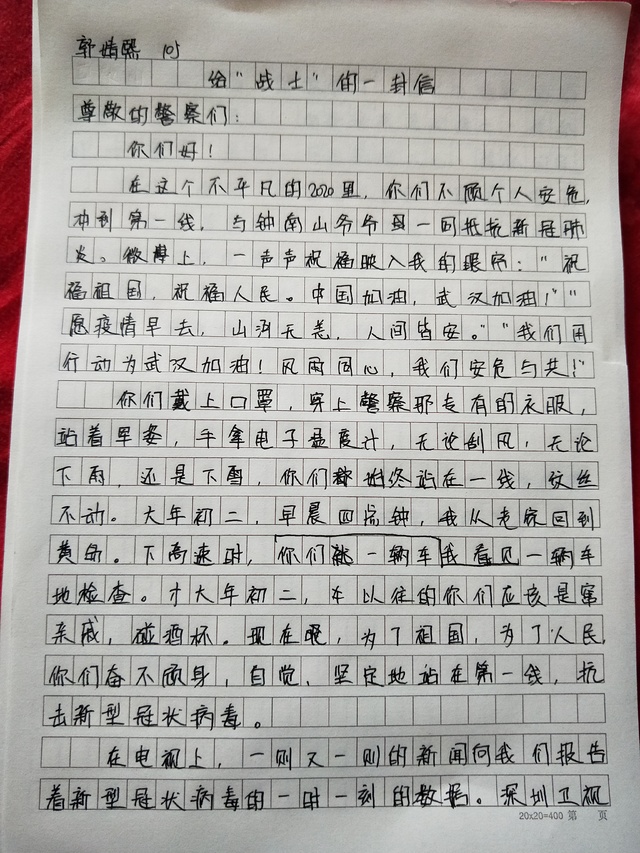 郭婧熙 105
给“战士”的一封信
尊敬的警察们:
你们好!
在这个不平凡的2020里,你们不顾个人安危,
冲到第一线,与钟南山爷爷一同抵抗新冠肺
炎。微博上,一声声祝福映入我的眼帘:“祝
福祖国,祝福人民。中国加油,武汉加油!”“
愿疫情早去,山河无恙,人间皆安。”“我们用
行动为武汉加油!风雨同心,我们安危与共!”
你们戴上口罩,穿上警察那专有的衣服,
站着军姿,手拿电子温度计,无论刮风,无论
下雨,还是下雪,你们都始终站在一线,纹丝
不动。大年初二,早晨四点钟,我从老家回到
黄岛。下高速时,你们就一辆车我看见一辆车
地检查。才大年初二,在以往的你们应该是窜
亲戚,碰酒杯。现在呢,为了祖国,为了人民,
你们奋不顾身,自觉、坚定地站在第一线,抗
击新型冠状病毒。
在电视上,一则又一则的新闻向我们报告
着新型冠状病毒的一时一刻的数据。深圳卫视
20x20=400 第 页